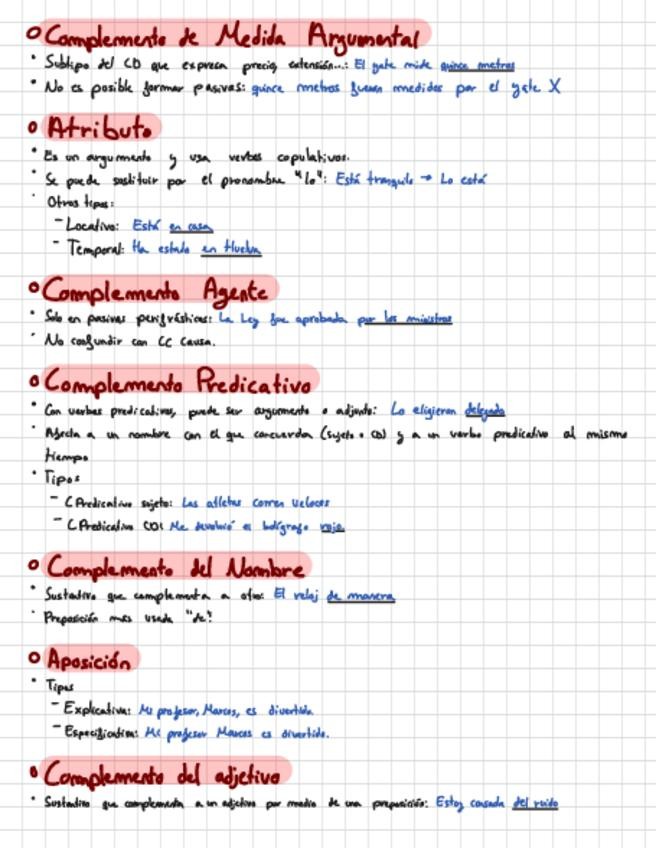 Complemento de Medida Argumental
• Subtipo del CD que expresa precio, extensión...: El yate mide quince metros
• No es posible formar pasivas: quince metros fueron medidos por el yate X
Atributo
• Es un argumento y usa verbos copulativos.
• Se puede sustituir por el pronombre "lo": Está tranquilo → Lo está
• Otros tipos:
- Locativo: Está en casa
- Temporal: Ha estado en Huelva
Complemento Agente
• Solo en pasivas perifrásticas: La Ley fue aprobada por los ministros
• No confundir con CC Causa.
Complemento Predicativo
• Con verbos predicativos, puede ser argumento o adjunto: Lo eligieron delegado
• Afecta a un nombre con el que concuerda (sujeto o CD) y a un verbo predicativo al mismo
tiempo
• Tipos
- C Predicativo sujeto: Las atletas corren veloces
- C Predicativo CD: Me devolvió el bolígrafo rojo
Complemento del Nombre
• Sustantivo que complementa a otro: El reloj de
• Preposición más usada "de"
Aposición
• Tipos
- Explicativa: Mi profesor, Marcos, es divertido.
- Especificativa: Mi profesor Marcos es divertido.
Complemento del adjetivo
• Sustantivo que complementa a un adjetivo por medio de una preposición: Estoy cansada del ruido